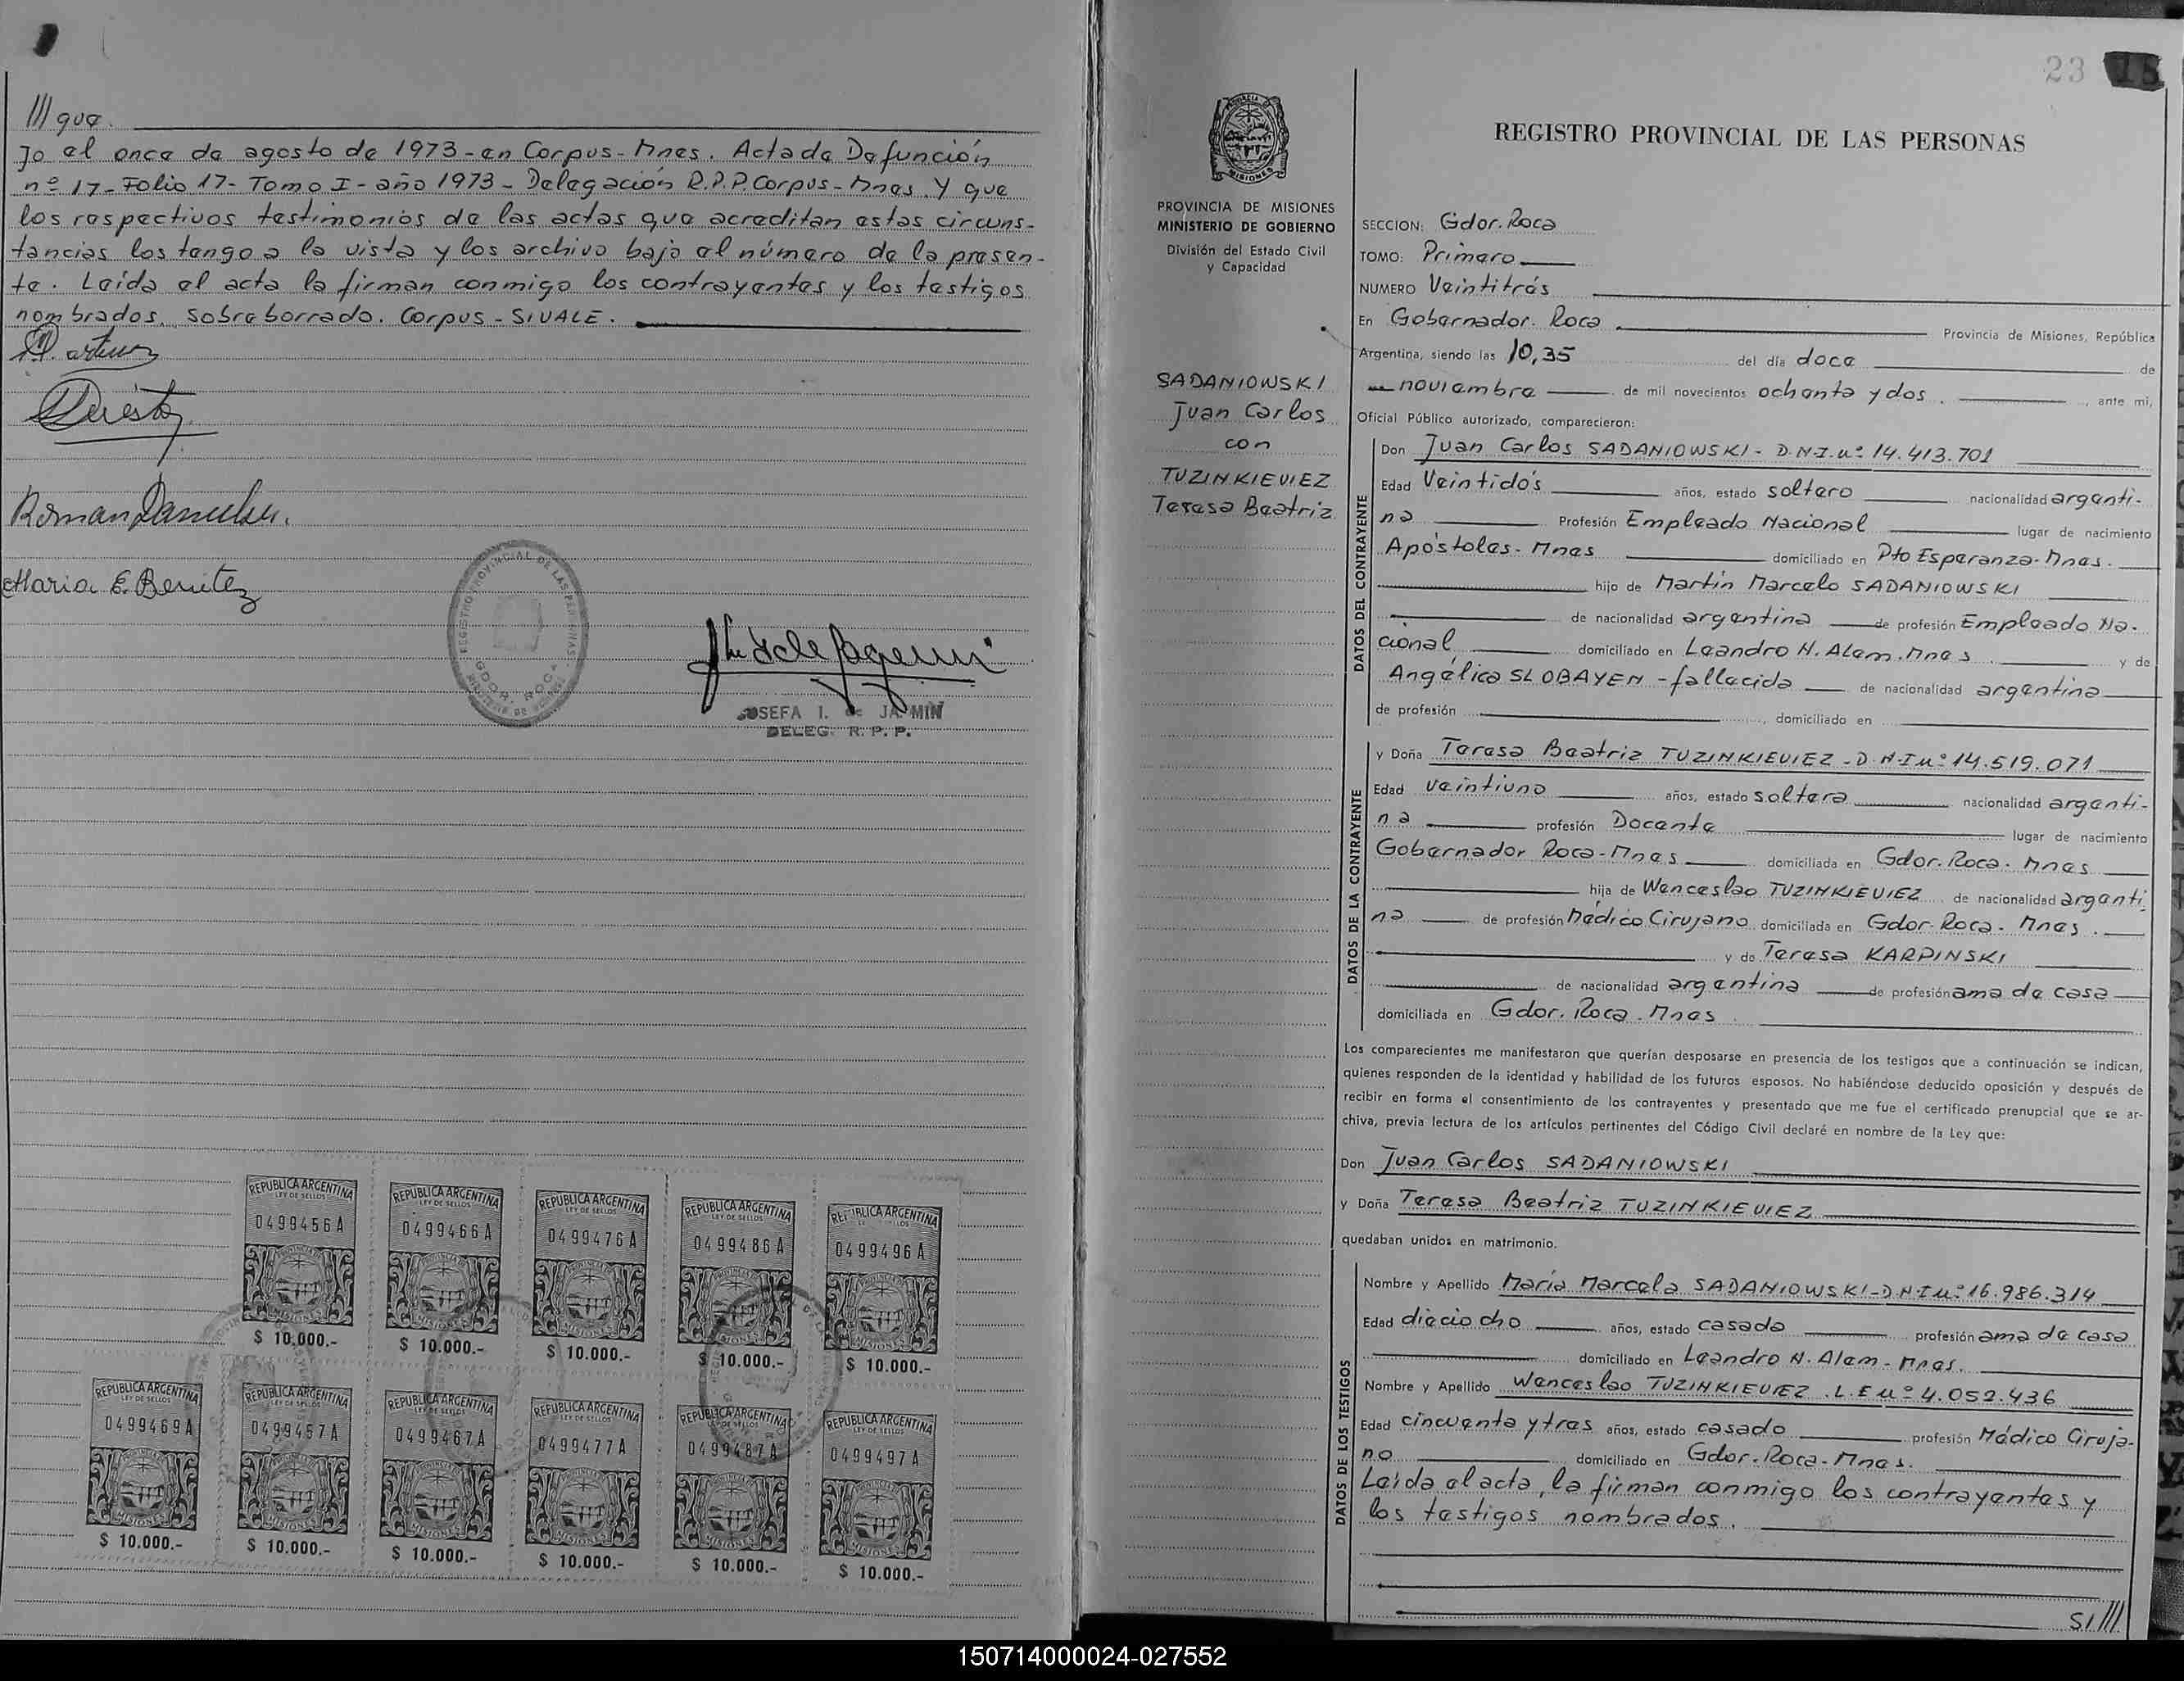 /// que.
jo el once de agosto de 1973 - en Corpus - Mnes. Acta de Defunción
nº 17 - Folio 17 - Tomo I - año 1973 - Delegación R.P.P. Corpus - Mnes. Y que
los respectivos testimonios de las actas que acreditan estas circuns-
tancias los tengo a la vista y los archivo bajo el número de la presen-
te. Leída el acta la firman conmigo los contrayentes y los testigos
nombrados. Sobreborrado. Corpus - SIVALE.
Maria E. Benitez
JOSEFA I. de JA MIN
DELEG. R. P. P.
REPUBLICA ARGENTINA
LEY DE SELLOS
0499456A
MISIONES
$ 10.000.-
REPUBLICA ARGENTINA
LEY DE SELLOS
0499466A
MISIONES
$ 10.000.-
REPUBLICA ARGENTINA
LEY DE SELLOS
0499476A
MISIONES
$ 10.000.-
REPUBLICA ARGENTINA
LEY DE SELLOS
0499486A
MISIONES
$ 10.000.-
REPUBLICA ARGENTINA
0499496A
MISIONES
$ 10.000.-
REPUBLICA ARGENTINA
LEY DE SELLOS
0499469A
MISIONES
$ 10.000.-
REPUBLICA ARGENTINA
LEY DE SELLOS
0499457A
MISIONES
$ 10.000.-
REPUBLICA ARGENTINA
LEY DE SELLOS
0499467A
MISIONES
$ 10.000.-
REPUBLICA ARGENTINA
LEY DE SELLOS
0499477A
MISIONES
$ 10.000.-
REPUBLICA ARGENTINA
LEY DE SELLOS
0499487A
MISIONES
$ 10.000.-
REPUBLICA ARGENTINA
LEY DE SELLOS
0499497A
MISIONES
$ 10.000.-
23
PROVINCIA DE MISIONES
MINISTERIO DE GOBIERNO
División del Estado Civil
y Capacidad
SADANIOWSKI
Juan Carlos
con
TUZINKIEVIEZ
Teresa Beatriz
REGISTRO PROVINCIAL DE LAS PERSONAS
SECCION: Gdor. Roca
TOMO: Primero
NUMERO Veintitrés
En Gobernador Roca Provincia de Misiones, República
Argentina, siendo las 10,35 del día doce de
noviembre de mil novecientos ochenta y dos. , ante mi,
Oficial Público autorizado, comparecieron:
DATOS DEL CONTRAYENTE
Don Juan Carlos SADANIOWSKI - D.N.I.nº 14.413.701
Edad Veintidós años, estado soltero nacionalidad argenti-
na Profesión Empleado Nacional lugar de nacimiento
Apóstoles - Mnes domiciliado en Pto Esperanza - Mnes.
hijo de Martín Marcelo SADANIOWSKI
de nacionalidad argentina de profesión Empleado Na-
cional domiciliado en Leandro N. Alem. Mnes y de
Angélica SLOBAYEN - fallecida de nacionalidad argentina
de profesión , domiciliado en
DATOS DE LA CONTRAYENTE
y Doña Teresa Beatriz TUZINKIEVIEZ - D.N.I nº 14.519.071
Edad veintiuno años, estado soltera nacionalidad argenti-
na profesión Docente lugar de nacimiento
Gobernador Roca - Mnes domiciliada en Gdor. Roca - Mnes
hija de Wenceslao TUZINKIEVIEZ de nacionalidad argenti
na de profesión Médico Cirujano domiciliada en Gdor. Roca - Mnes.
y de Teresa KARPINSKI
de nacionalidad argentina de profesión ama de casa
domiciliada en Gdor. Roca - Mnes
Los comparecientes me manifestaron que querían desposarse en presencia de los testigos que a continuación se indican,
quienes responden de la identidad y habilidad de los futuros esposos. No habiéndose deducido oposición y después de
recibir en forma el consentimiento de los contrayentes y presentado que me fue el certificado prenupcial que se ar-
chiva, previa lectura de los artículos pertinentes del Código Civil declaré en nombre de la Ley que:
Don Juan Carlos SADANIOWSKI
y Doña Teresa Beatriz TUZINKIEVIEZ
quedaban unidos en matrimonio.
DATOS DE LOS TESTIGOS
Nombre y Apellido María Marcela SADANIOWSKI - D.N.I nº 16.986.314
Edad dieciocho años, estado casada profesión ama de casa
domiciliado en Leandro N. Alem - Mnes.
Nombre y Apellido Wenceslao TUZINKIEVIEZ . L.E nº 4.052.436
Edad cincuenta y tres años, estado casado profesión Médico Ciruja-
no domiciliado en Gdor. Roca - Mnes.
Leída el acta, la firman conmigo los contrayentes y
los testigos nombrados.
SI///
150714000024-027552